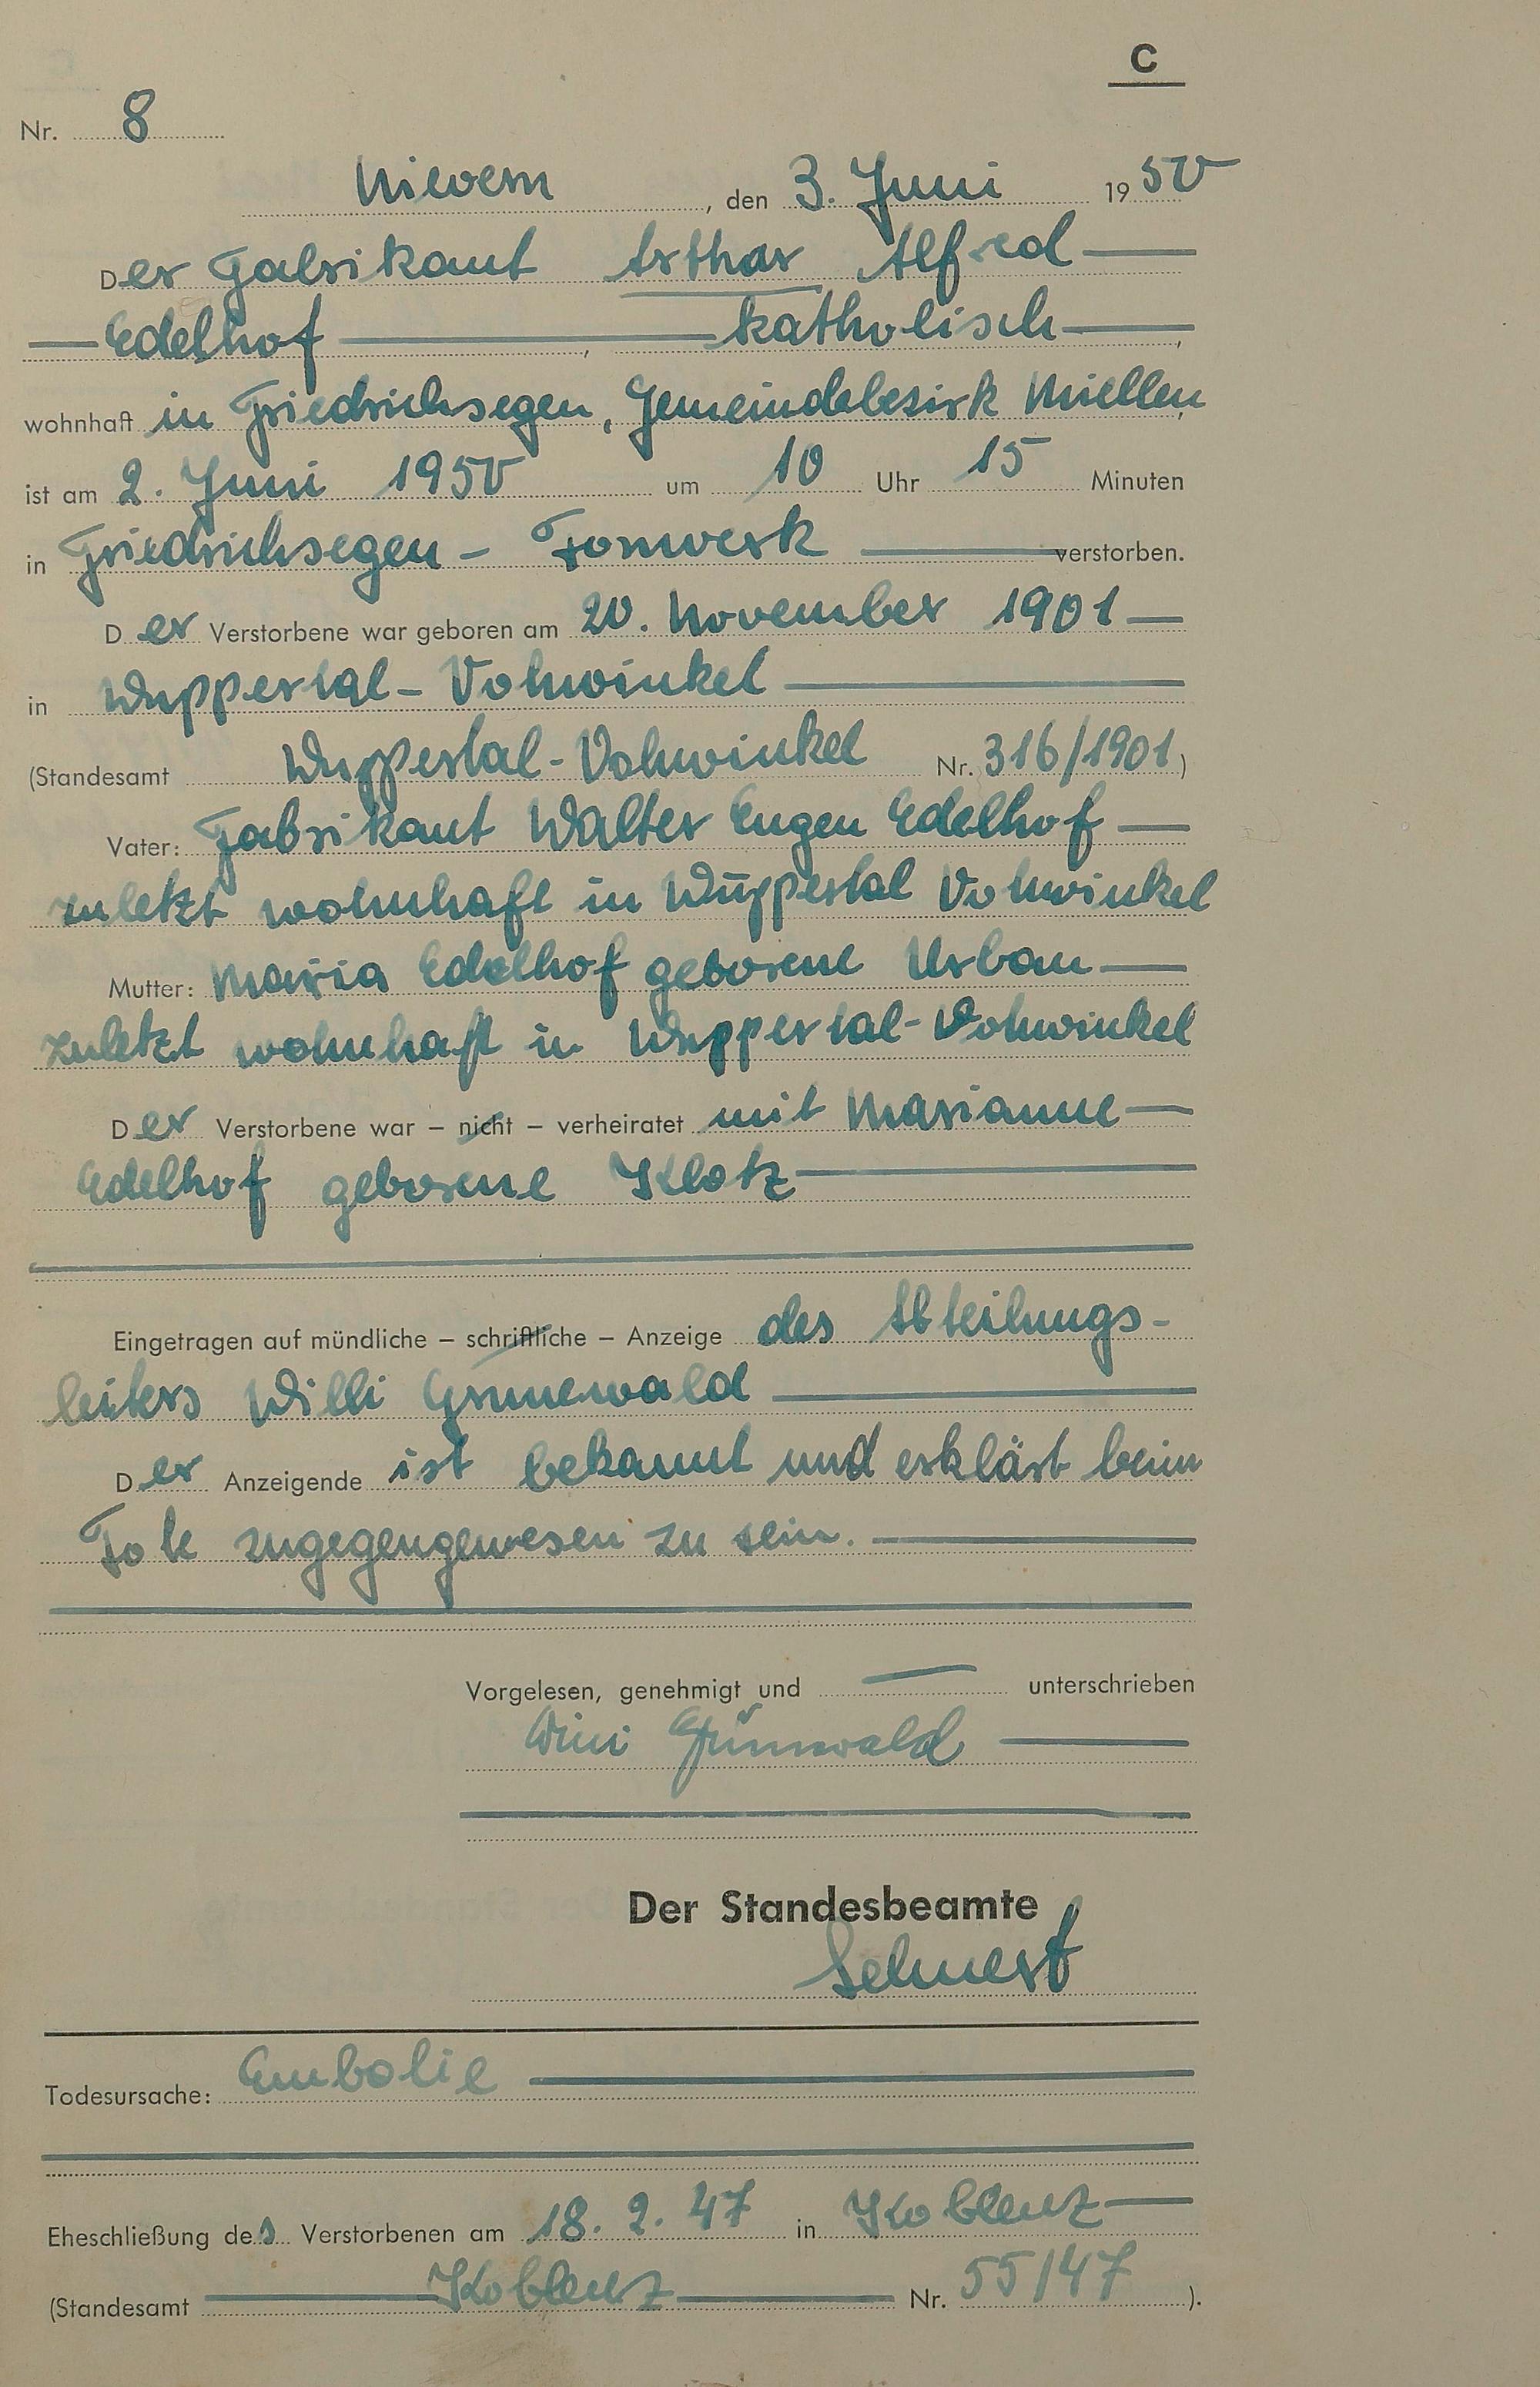 C
Nr. 8
Nievern, den 3. Juni 1950
Der Fabrikant Arthur Alfred
Edelhof, katholisch,
wohnhaft in Friedrichssegen, Gemeindebezirk Miellen,
ist am 2. Juni 1950 um 10 Uhr 15 Minuten
in Friedrichsegen - Tonwerk verstorben.
Der Verstorbene war geboren am 20. November 1901
in Wuppertal-Vohwinkel
(Standesamt Wuppertal-Vohwinkel Nr. 316/1901)
Vater: Fabrikant Walter Eugen Edelhof
zuletzt wohnhaft in Wuppertal Vohwinkel
Mutter: Maria Edelhof geborene Urban
zuletzt wohnhaft in Wuppertal-Vohwinkel
Der Verstorbene war – nicht – verheiratet mit Marianne
Edelhof geborene Klotz
Eingetragen auf mündliche – schriftliche – Anzeige des Abteilungs-
leiters Willi Grunewald
Der Anzeigende ist bekannt und erklärt beim
Tode zugegengewesen zu sein.
Vorgelesen, genehmigt und unterschrieben
Willi Grünwald
Der Standesbeamte
Todesursache: Embolie
Eheschließung des Verstorbenen am 18. 2. 47 in Koblenz
(Standesamt Koblenz Nr. 55/47).